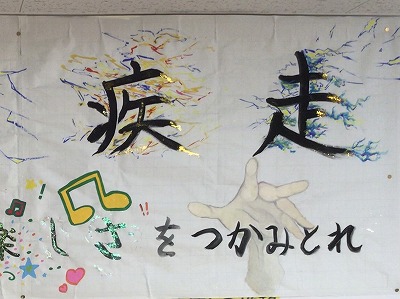 疾走
楽しさをつかみとれ